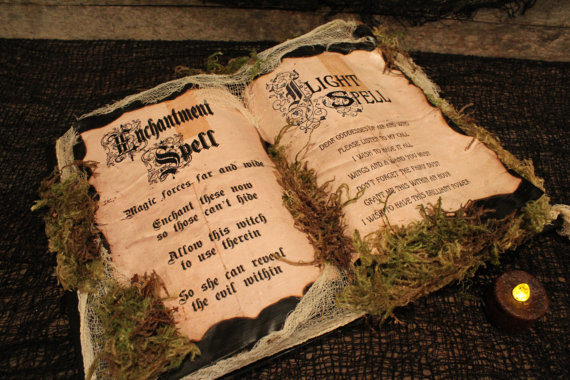 Enchantment
Spell
Magic forces far and wide
Enchant these now
so those can't hide
Allow this witch
to use therein
So she can reveal
the evil within
FLIGHT
SPELL
DEAR GODDESSES OF AIR AND WIND
PLEASE LISTEN TO MY CALL
I WISH TO HAVE IT ALL
WINGS AND A WAND YOU MUST
DON'T FORGET THE FAIRY DUST
GRANT ME THIS WITHIN AN HOUR
I WISH TO HAVE THIS BRILLIANT POWER